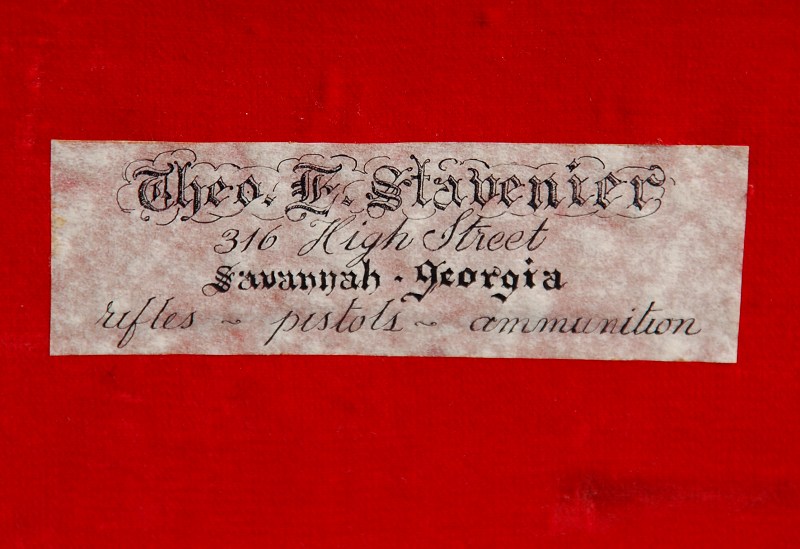 Theo. F. Stavenier
316 High Street
Savannah - Georgia
rifles ~ pistols ~ ammunition